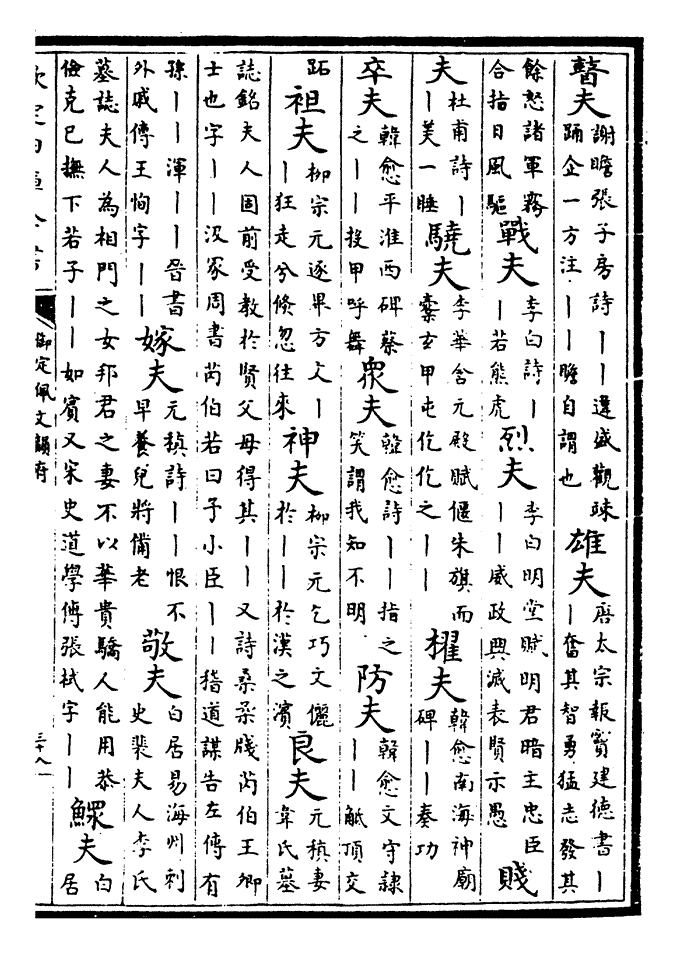 瞽夫 謝瞻張子房詩丨丨違盛觀竦踊企一方注丨丨瞻自謂也 雄夫 唐太宗報竇建德書丨丨奮其智勇猛志發其
餘怒諸軍霧合指日風驅 戰夫 李白詩丨丨若熊虎 烈夫 李白明堂賦明君暗主忠臣丨丨威政興滅表賢示愚 賤
夫 杜甫詩丨丨美一睡 驍夫 李華含元殿賦偃朱旗而櫜玄甲屯仡仡之丨丨 櫂夫 韓愈南海神廟碑丨丨奏功
卒夫 韓愈平淮西碑蔡之丨丨投甲呼舞 衆夫 韓愈詩丨丨指之笑謂我知不明 防夫 韓愈文守隸丨丨觝頂交
跖 袒夫 柳宗元逐畢方文丨丨狂走兮倏忽往來 神夫 柳宗元乞巧文儷於丨丨於漢之濱 良夫 元稹妻韋氏墓
誌銘夫人固前受教於賢父母得其丨丨又詩桑柔牋芮伯王卿
士也字丨丨汲冢周書芮伯若曰子小臣丨丨稽道謀告左傳有
孫丨丨渾丨丨晉書外戚傳王恂字丨丨 嫁夫 元稹詩丨丨恨不早養兒將備老 敬夫 白居易海州刺史裴夫人李氏
墓誌夫人為相門之女邦君之妻不以華貴驕人能用恭
儉克已撫下若子丨丨如賓又宋史道學傳張栻字丨丨 鰥夫 白居
欽定四庫全書
御定佩文韻府